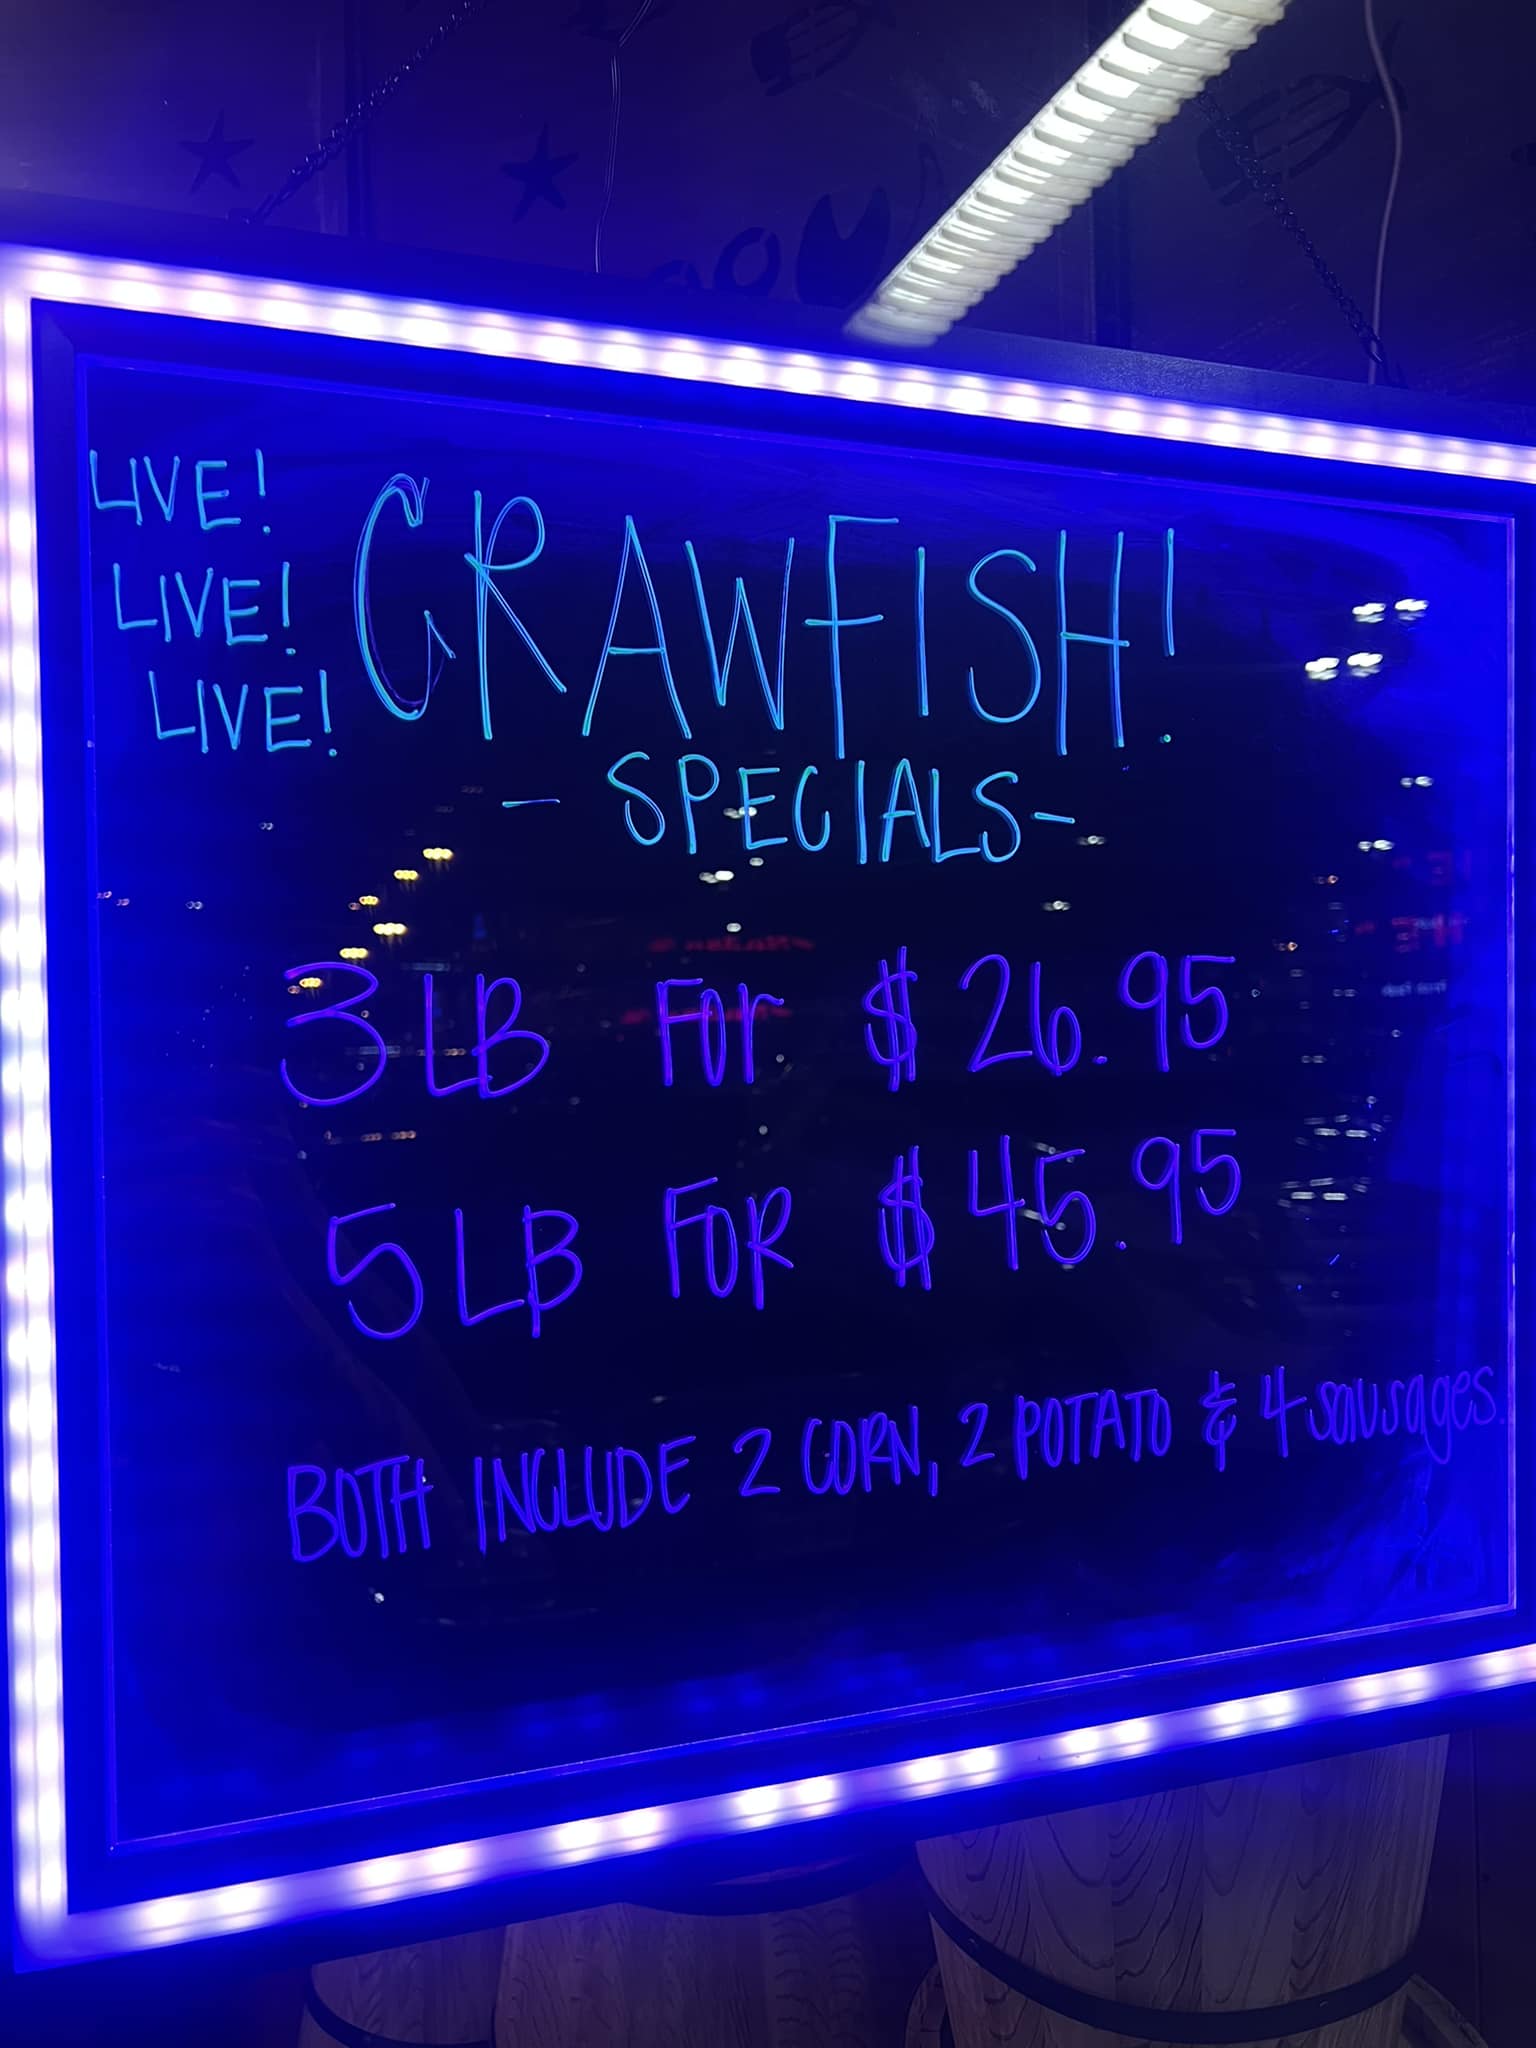 LIVE!
LIVE!
LIVE!
CRAWFISH!
- SPECIALS-
3 LB For $ 26.95
5 LB FOR $ 45.95
BOTH INCLUDE 2 CORN, 2 POTATO & 4 sausages.